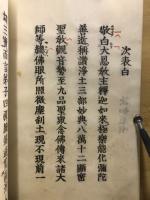 次表白
敬白大恩教主釋迦如来極樂能化弥陀
善逝稱讃浄土三部妙典八萬十二顕密
聖教觀音勢至九品聖衆念佛傳来諸大
師等總佛眼所照微塵刹土現不現前一